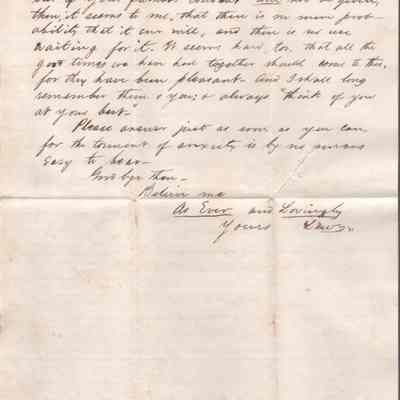 out of your parents consent and not be given,
then it seems to me, that there is no more prob-
ability that it ever will, and there is no use
waiting for it. It seems hard, too, that all the
good times we have had together should come to this,
for they have been pleasant and I shall long
remember them & you; & always "think of you
at your best."
Please answer just as soon as you can
for the torment of anxiety is by no means
Easy to bear—
Good bye then—
Believe me
As Ever and Lovingly
Yours